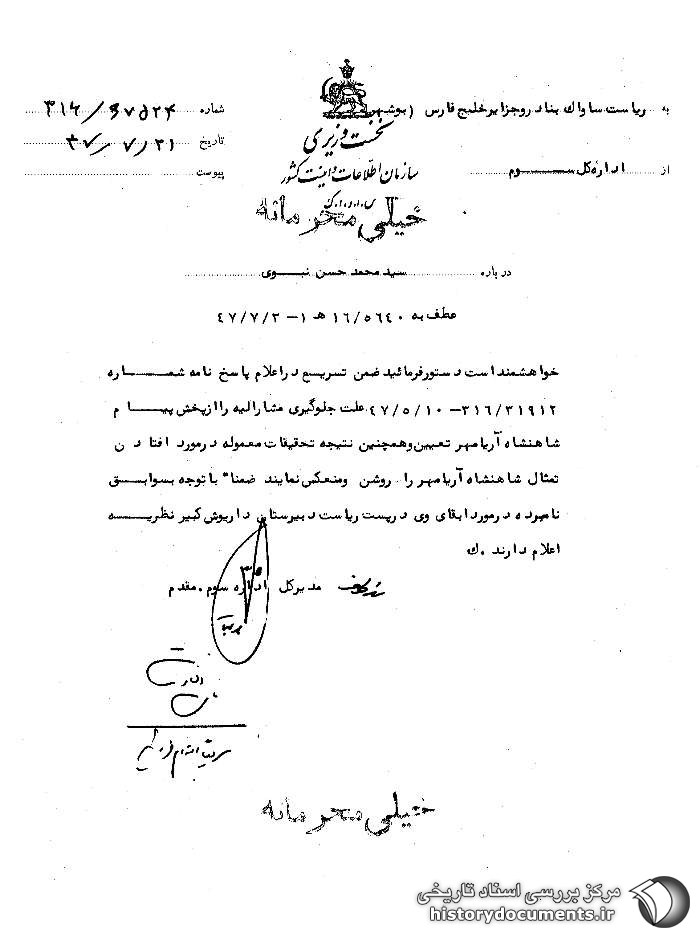 به ریاست ساواک بنادر و جزایر خلیج فارس (بوشهر)
از اداره کل سوم
نخست وزیری
سازمان اطلاعات و امنیت کشور
س.ا.و.ا.ک
شماره ۳۱۶/۳۷۵۲۴
تاریخ ۴۷/۷/۲۱
پیوست
خیلی محرمانه
درباره سید محمد حسن نبوی
عطف به ۱۶/۵۶۴۰ ه ۱-۴۷/۷/۲
خواهشمند است دستور فرمائید ضمن تسریع در اعلام پاسخ نامه شماره
۳۱۶/۳۱۹۱۲-۴۷/۵/۱۰ علت جلوگیری مشارالیه را از پخش پیام
شاهنشاه آریامهر تعیین و همچنین نتیجه تحقیقات معموله در مورد افتادن
تمثال شاهنشاه آریامهر را روشن و منعکس نمایند ضمنا" با توجه بسوابق
نامبرده در مورد ابقای وی در پست ریاست دبیرستان داریوش کبیر نظریه
اعلام دارند .ک
مدیرکل اداره سوم . مقدم
خیلی محرمانه
مرکز بررسی اسناد تاریخی
historydocuments.ir